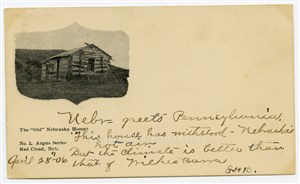 The "Old" Nebraska Home.
No. 2. Argus Series
Red Cloud, Neb.
Nebr greets Pennsylvania,
This house has withstood - Nebraska's
hot air
But the climate is better than
that of Wilkes Barre
April 28-06